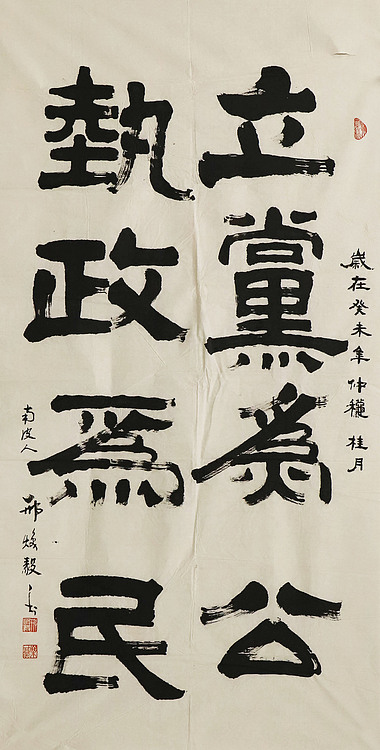 歲在癸未年仲穐桂月
立黨為公
執政爲民
南皮人
邢煥毅書